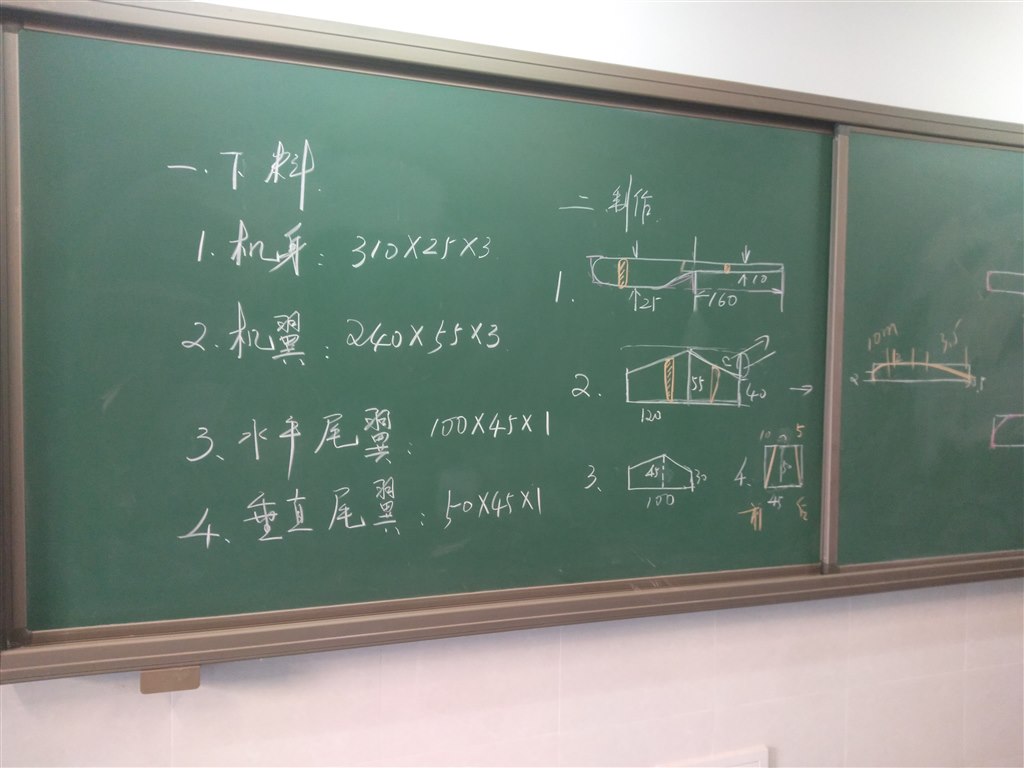 一.下料.
1.机身:310×25×3
2.机翼:240×55×3
3、水平尾翼:100×45×1
4、垂直尾翼:50×45×1
二 制作.
1.
25
160
10
2.
55
40
120
3、
45
30
100
4.
10
5
50
45
前
后
10m
3.5